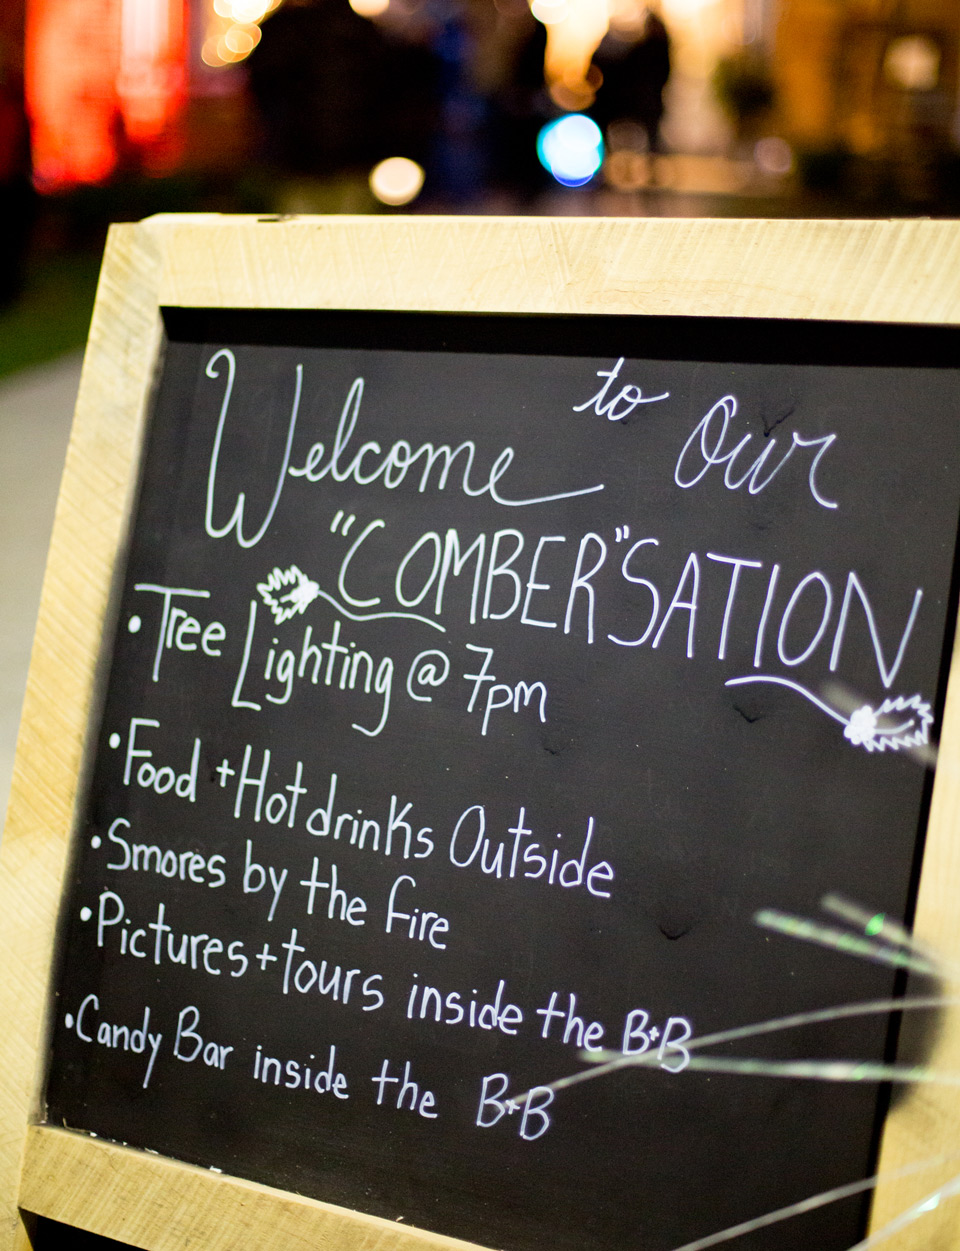 Welcome to Our
"COMBER"SATION
• Tree Lighting @ 7pm
• Food + Hot drinks Outside
• Smores by the fire
• Pictures + tours inside the B+B
• Candy Bar inside the B+B